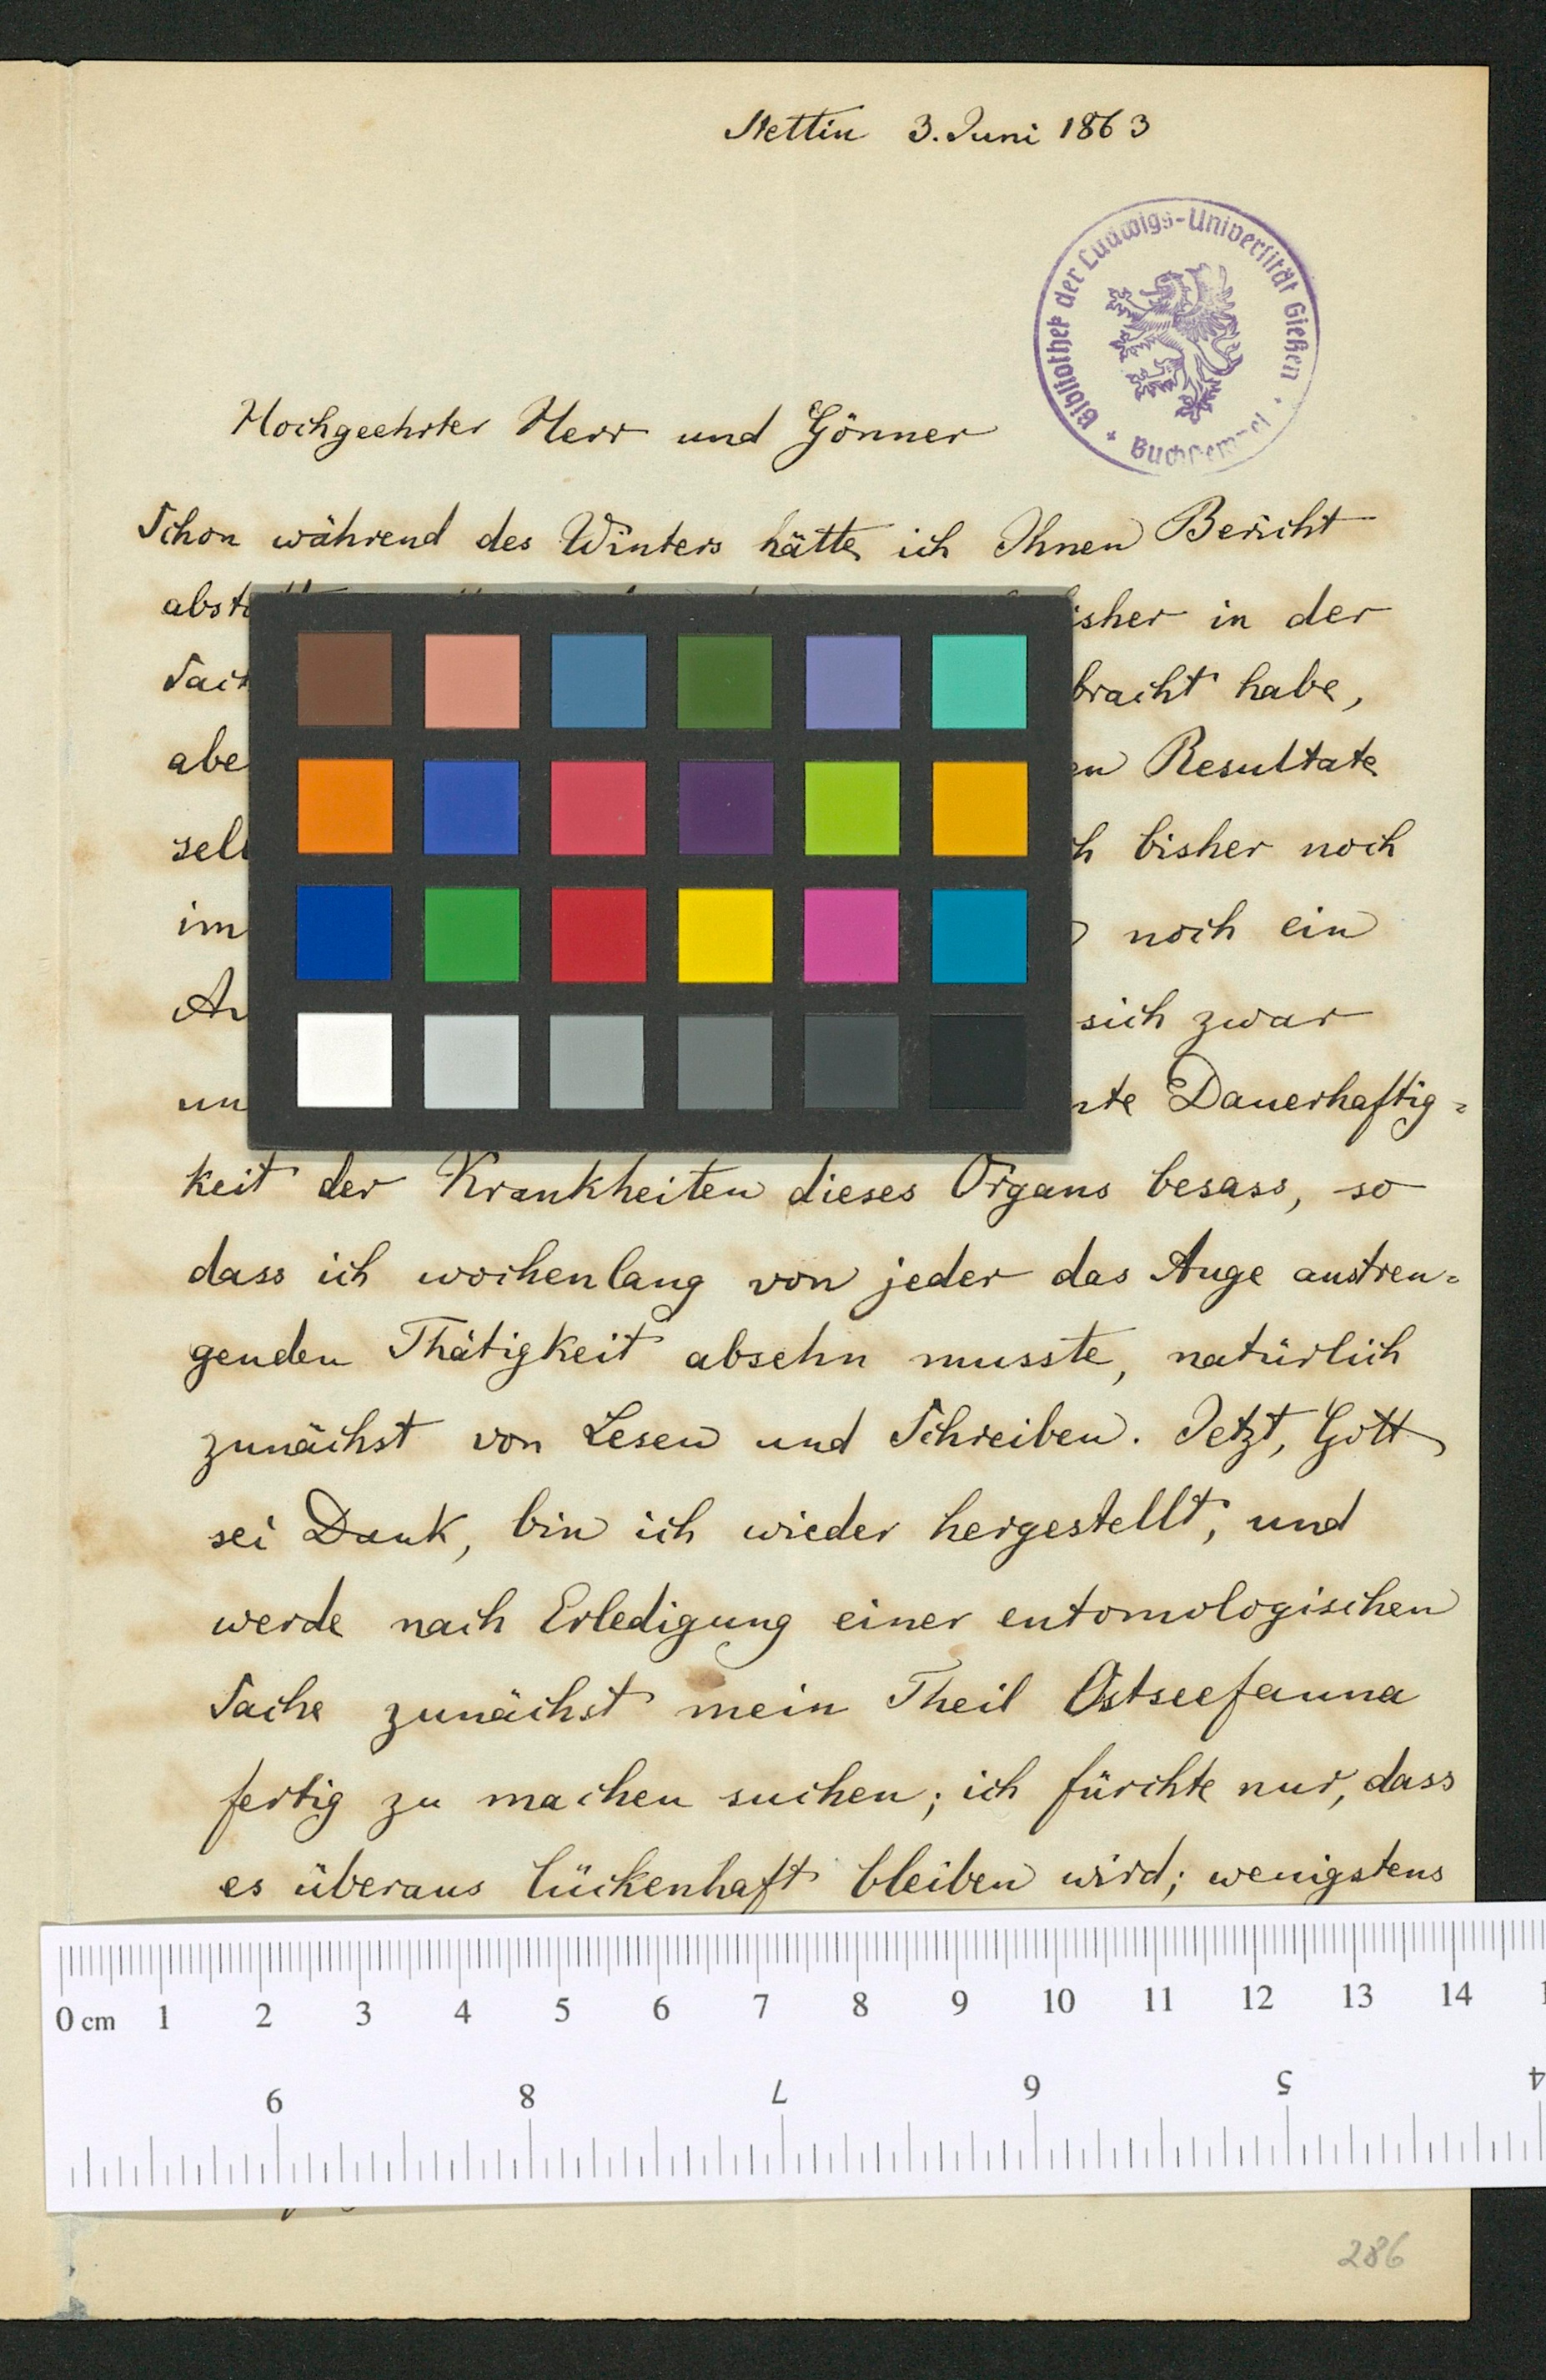 Stettin 3. Juni 1863
Bibliothek der Ludwigs-Universität Gießen
Hochgeehrter Herr und Gönner
Schon während des Winters hätte ich Ihnen Bericht
isher in der
bracht habe,
abe en Resultate
h bisher noch
im noch ein
sich zwar
un nte Dauerhaftig=
keit der Krankheiten dieses Organs besass, so
dass ich wochenlang von jeder das Auge anstren=
genden Thätigkeit absehn musste, natürlich
zunächst von Lesen und Schreiben. Jetzt, Gott
sei Dank, bin ich wieder hergestellt, und
werde nach Erledigung einer entomologischen
Sache zunächst mein Theil Ostseefauna
fertig zu machen suchen; ich fürchte nur, dass
es überaus lückenhaft bleiben wird; wenigstens
0 cm 1 2 3 4 5 6 7 8 9 10 11 12 13 14
9 8 7 6 5 4
286